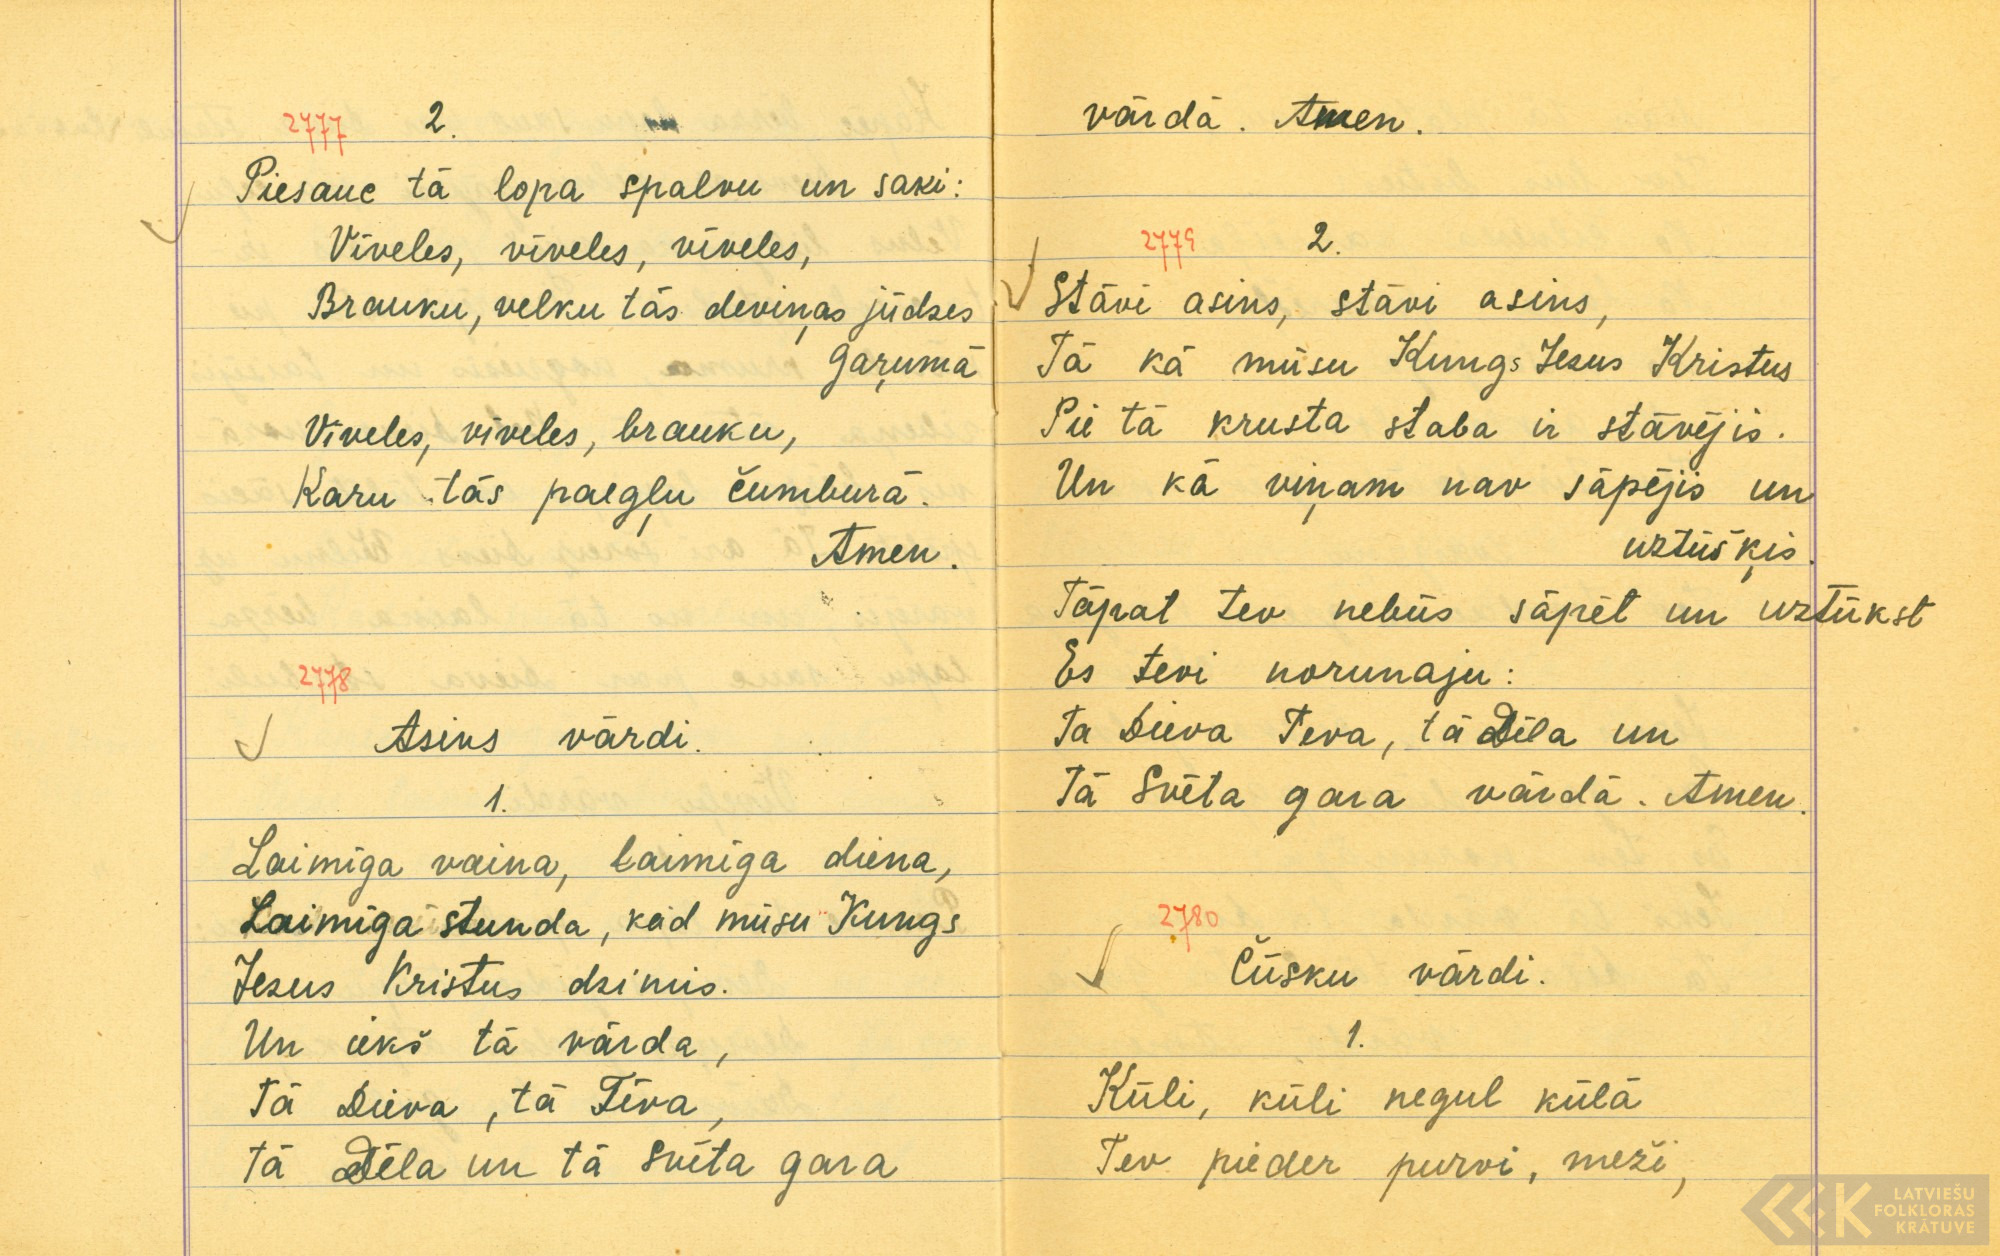 2777 2.
Piesauc tā lopa spalvu un saki:
Vīveles, vīveles, vīveles,
Brauku, velku tās deviņas jūdzes
gaŗumā
Vīveles, vīveles, brauku,
Karu tās paegļu čumburā.
Amen.
2778
Asins vārdi.
1.
Laimīga vaina, laimīga diena,
Laimīga stunda, kad mūsu Kungs
Jezus Kristus dzimis.
Un iekš tā vārda,
Tā Dieva, tā Tēva,
tā Dēla un tā Svēta gara
vārdā. Amen.
2779 2.
Stāvi asins, stāvi asins,
Tā kā mūsu Kungs Jezus Kristus
Pie tā krusta staba ir stāvējis.
Un kā viņam nav sāpējis un
uztūšķis.
Tāpat tev nebūs sāpēt un uztūkst
Es tevi norunaju:
Ta Dieva Teva, tā Dēla un
Tā Svēta gara vārdā. Amen.
2780
Čūsku vārdi.
1.
Kūli, kūli negul kūlā
Tev pieder purvi, meži,
LATVIEŠU
FOLKLORAS
KRĀTUVE